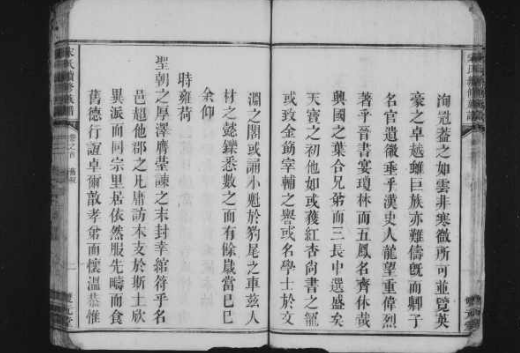 洵冠蓋之如雲非寒微所可並覽英
豪之卓越雖巨族亦難儔旣而卿子
名官遺徽垂乎漢史人龍望重偉烈
著乎晉書宴瓊林而五鳳名齊休哉
興國之葉合兄弟而三長中選盛矣
天寶之初他如或穫紅杏尙書之寵
或致金餙宰輔之譽或名學士於文
淵之閣或誦小魁於豹尾之車茲人
材之懿鑠悉數之而有餘歲當巳巳
余仰
時雍荷
聖朝之厚澤膺臺諫之末封幸綰符乎名
邑超他郡之凡庸訪本支於斯土欣
異派而同宗里居依然服先疇而食
舊德行誼卓爾敦孝弟而懷溫恭惟